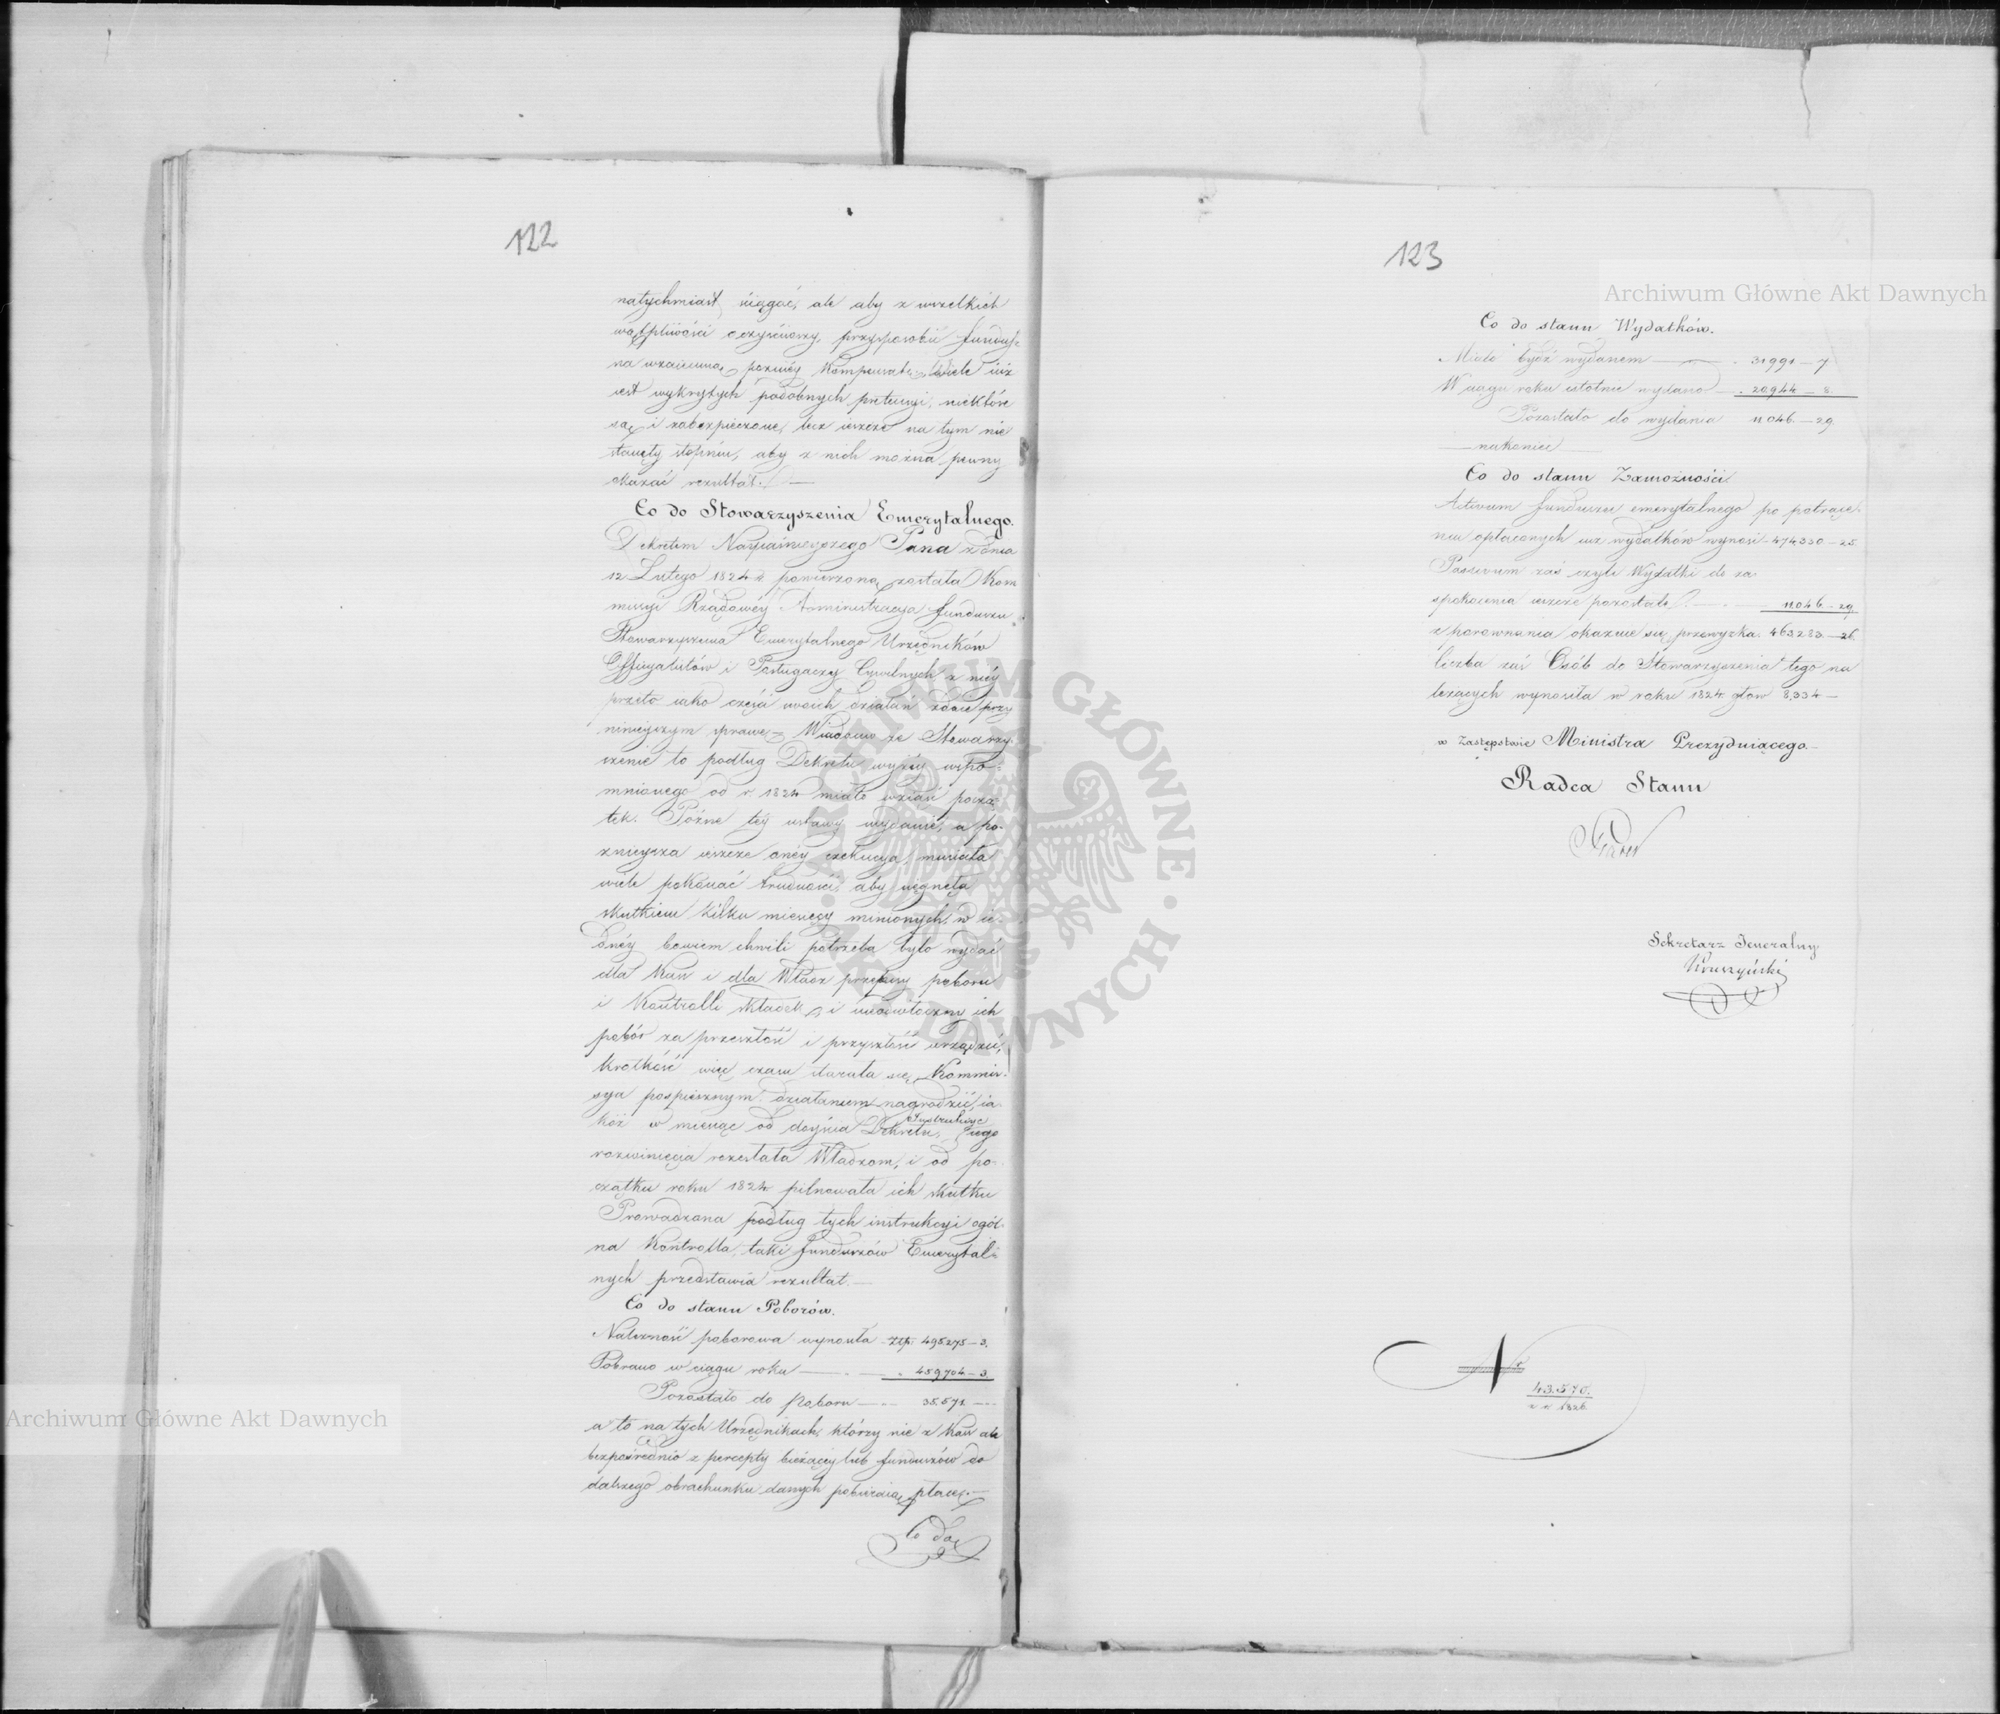 122
natychmiast ściągać, ale aby z wszelkich
wątpliwości oczyściwszy, przysposobić fundusz
na wzaiemną poźniey kompensatę. Wiele iuż
iest wykrytych podobnych pretensyi, niektóre
są i zabezpieczone, lecz ieszcze na tym nie
stanęły stopniu, aby z nich można pewny
okazać rezultat. —
Co do Stowarzyszenia Emerytalnego.
Dekretem Nayiaśnieyszego Pana z dnia
12 Lutego 1824 r. powierzona została Kom
missyi Rządowéy Administracya funduszu
Stowarzyszenia Emerytalnego Urzędników
Officyalistów i Posługaczy Cywilnych z niéy
przeto iako części swoich działań zdaie przy
ninieyszym sprawę. Wiadomo że Stowarzy-
szenie to podług Dekretu wyżéy wspo-
mnionego od r. 1824 miało wziąść począ-
tek. Późne téy ustawy wydanie, a po-
znieysza ieszcze onéy exekucya, musiała
wiele pokonać trudności, aby sięgnęła
skutkiem kilku miesięcy minionych, w ie-
dnéy bowiem chwili potrzeba było wydać
dla Kass i dla Władz przepisy poboru
i Kontrolli składek, i nieodwłocznie ich
pobór za przeszłość i przyszłość urządzić,
Krotkość więc czasu starała się Kommis-
sya pospiesznym działaniem nagrodzić, ia-
koż w miesiąc od doyścia Dekretu, Instrukcye iego
rozwinięcia rozesłała Władzom, i od po-
czątku roku 1824 pilnowała ich skutku
Prowadzona podług tych instrukcyi ogól-
na Kontrolla, taki funduszów Emerytal-
nych przedstawia rezultat. —
Co do stanu Poborów.
Należność poborowa wynosiła Złp. 495.275 — 3.
Pobrano w ciągu roku — . — . 459704 — 3.
Pozostało do poboru — 35.571. —
a to na tych Urzędnikach, którzy nie z Kass ale
bezpośrednio z percepty bieżącey lub funduszów do
dalszego obrachunku danych pobieraią płacę. —
Co do
123
Co do stanu Wydatków.
Miało bydź wydanem — . 31991 — 7
W ciągu roku istotnie wydano . 20,944 — 8.
Pozostało do wydania 11046. — 29
— nakoniec —
Co do stanu Zamożności
Activum funduszu emerytalnego po potrące-
niu opłaconych iuż wydatków wynosi - 474330 — 25.
Passivum zaś czyli Wydatki do za-
spokoienia ieszcze pozostałe . — 11.046 - 29.
z porownania okazuie się przewyżka . 463283. — 26.
liczba zaś Osób do Stowarzyszenia tego na
leżących wynosiła w roku 1824 głow 8,334 —
w Zastępstwie Ministra Prezyduiącego
Radca Stanu
Sekretarz Jeneralny
Kruszyński
Nr
43.570.
z r. 1826
Archiwum Główne Akt Dawnych
Archiwum Główne Akt Dawnych
ARCHIWUM GŁÓWNE AKT DAWNYCH